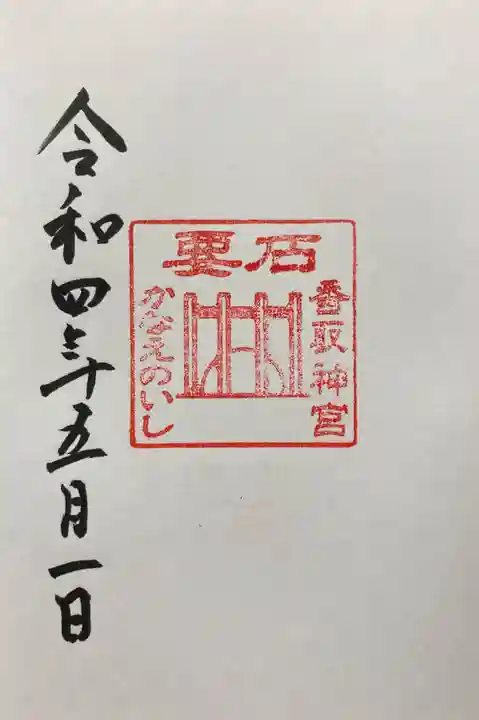 要石
香取神宮
かなめのいし
令和四年五月一日